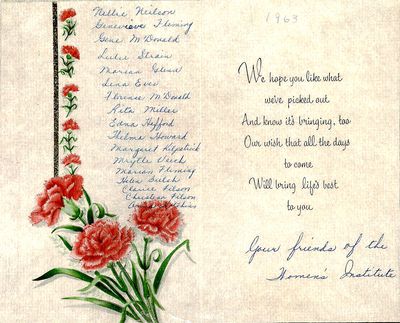 Nellie Neilson
Genevieve Fleming
Gene McDonald
Lulu Strain
Marian
Lena Eves
Florence McDonald
Rita Miller
Edna Hufford
Thelma Howard
Margaret Kilpatrick
Myrtle Veitch
Marian Fleming
Helen Butch
Clarice Filson
Christian Filson
1963
We hope you like what
we've picked out
And know it's bringing, too
Our wish that all the days
to come
Will bring life's best
to you
Your friends of the
Women's Institute